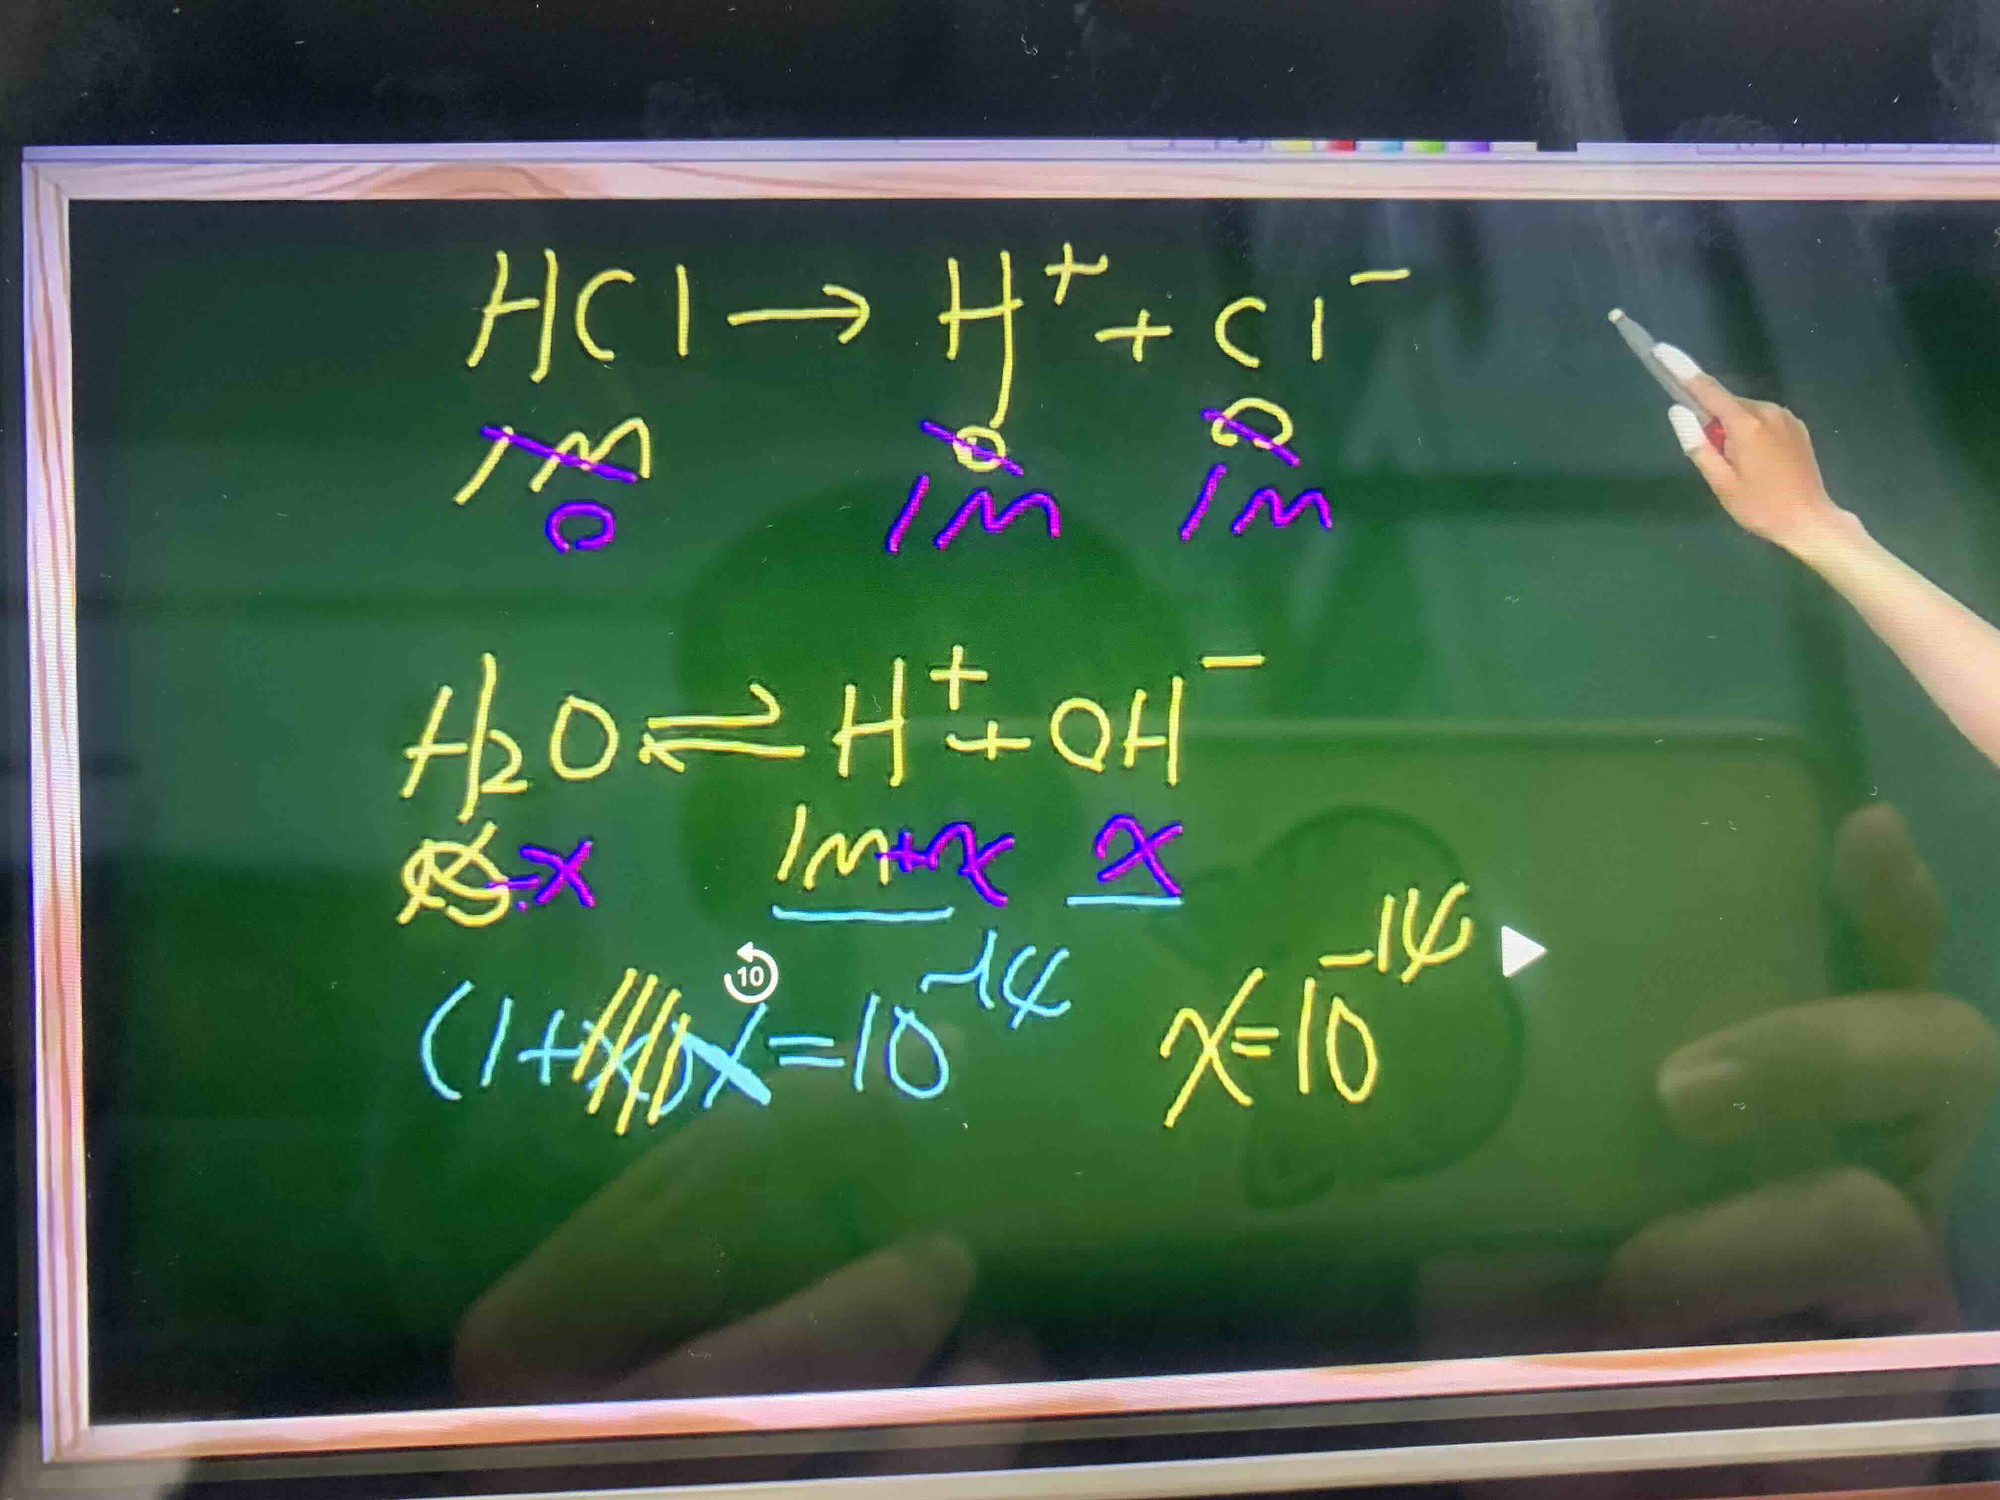 HCl → H⁺ + Cl⁻
1M 0 0
0 1M 1M
H₂O ⇌ H⁺ + OH⁻
-x 1M+x x
10
(1+x)x=10⁻¹⁴ x=10⁻¹⁴